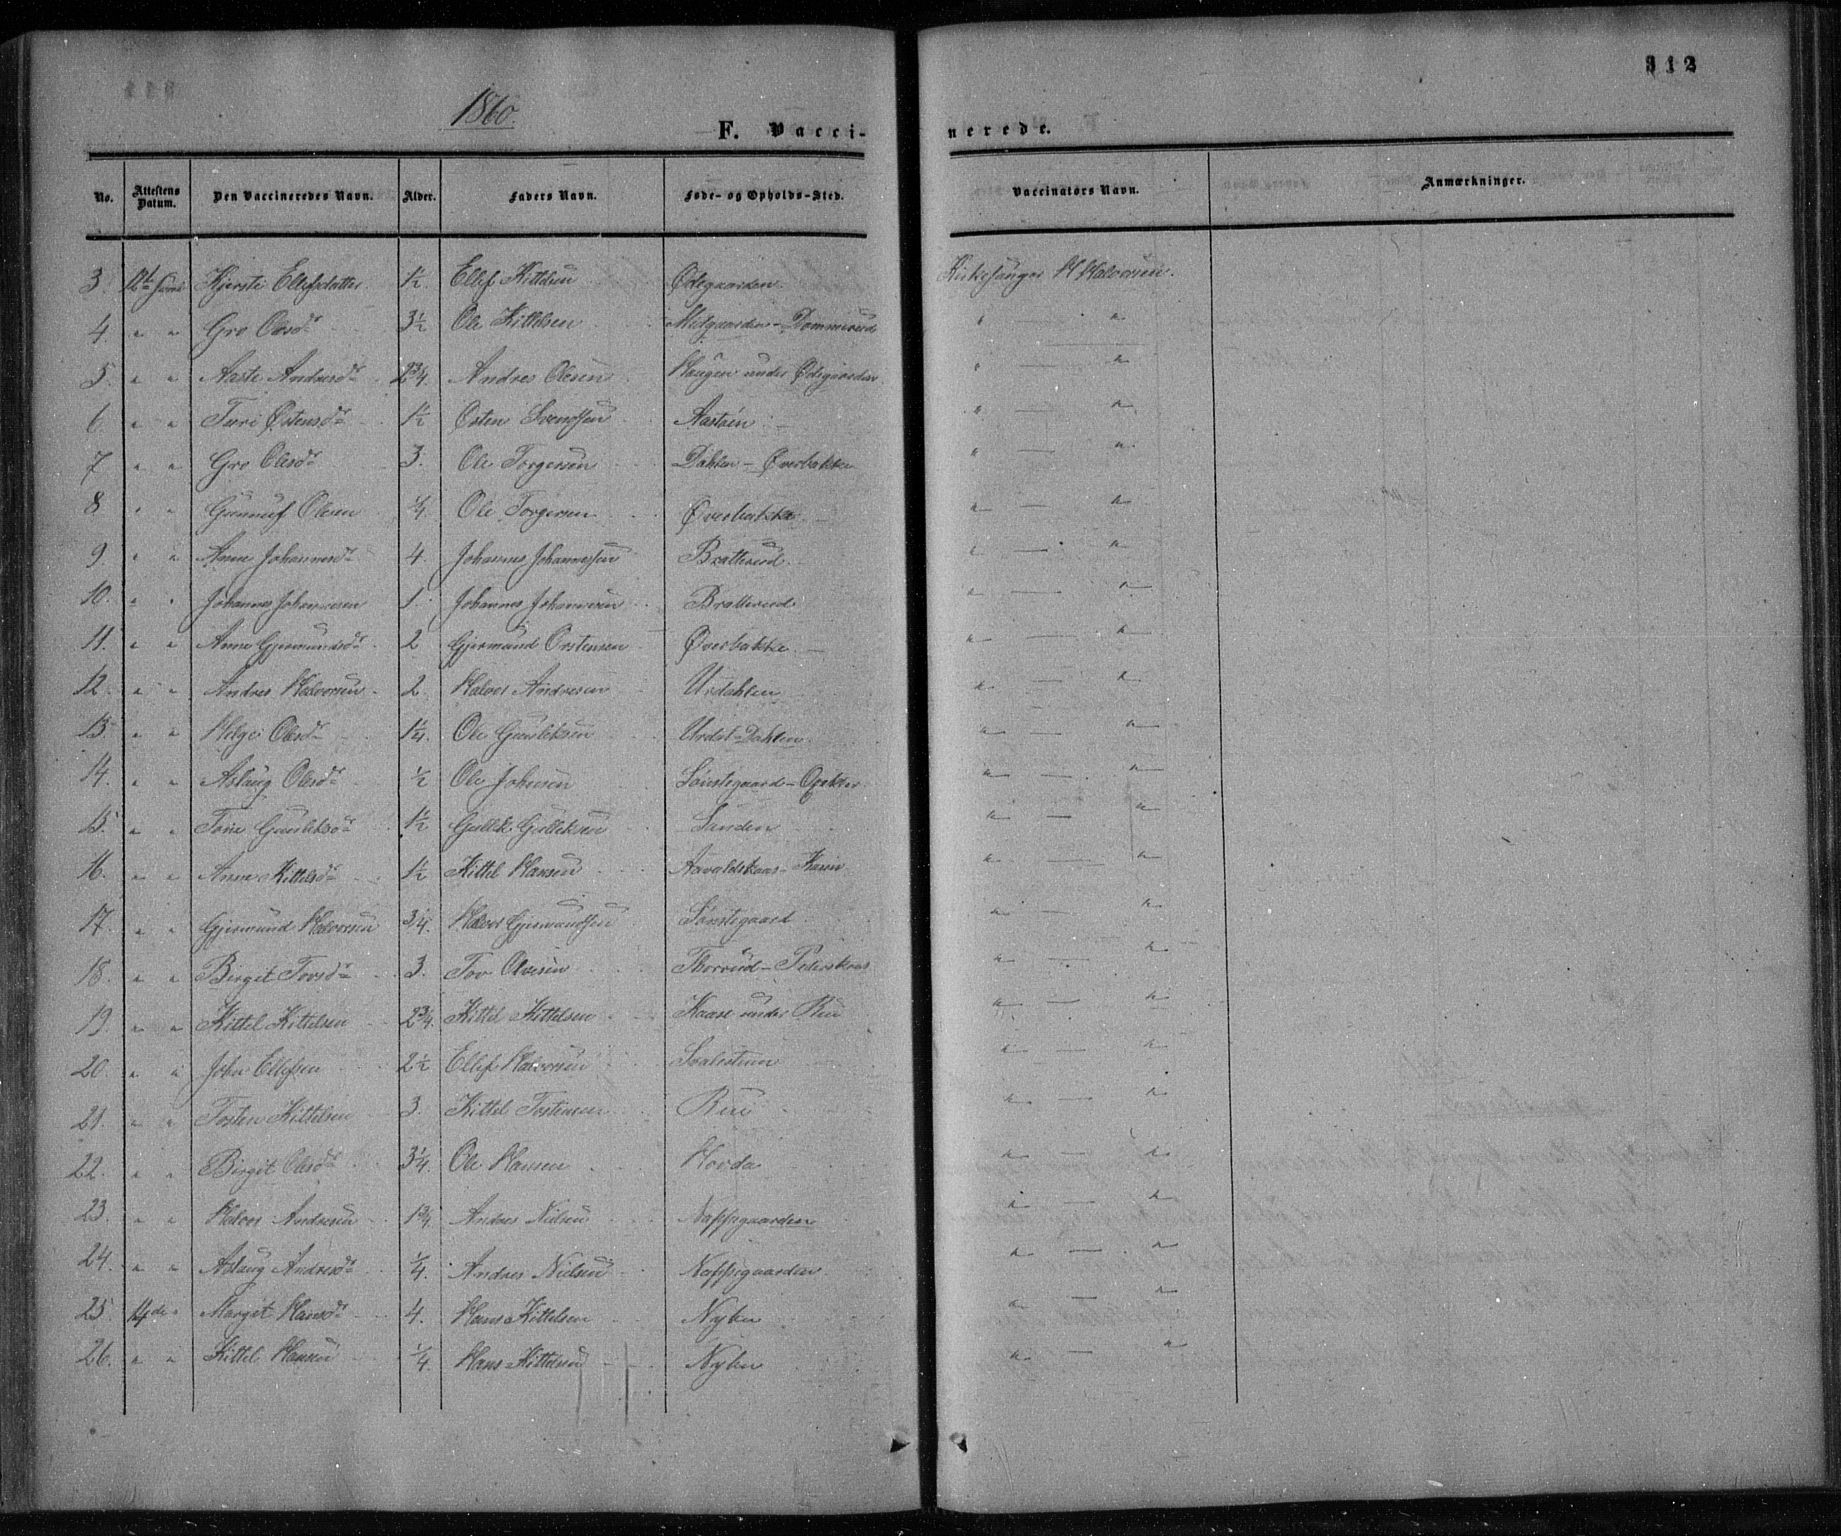 312
1860.
F. Vaccinerede.
No. Attestens Datum. Den Vaccineredes Navn. Alder. Faders Navn. Føde- og Opholds-Sted. Vaccinators Navn. Anmærkninger.
3. 12te Juni Kjersti Ellefsdatter 1½ Ellef Kittelsen Ødegaarden Kirkesanger H Halvorsen.
4. " " Gro Olesdr 3½ Ole Kittelsen Midgaarden - Dommerud " — "
5. " " Aaste Andresdr 2¾ Andres Olesen Haugen under Ødegaarden " — "
6. " " Turi Østensdr 1½ Østen Svendsen Aastøen " — "
7. " " Gro Olesdr 3. Ole Torgersen Dahlen - Øverbakke " — "
8. " " Gunnuf Olesen ¼. Ole Torgersen Øverbakke " — "
9. " " Anne Johannesdr 4. Johannes Johannessen Bratterud " — "
10. " " Johannes Johannesen 1. Johannes Johannesen Bratterud " — "
11. " " Anne Gjermundsdr 2 Gjermund Orstensen Øverbakke " — "
12. " " Andres Halvorsen 2. Halvor Andresen Urdahlen " — "
13. " " Helge Olesdr 1¼. Ole Gunleksen Urdal-Dahlen " — "
14. " " Aslaug Olesdr ½ Ole Johnsen Sønstegaard - " — "
15. " " Tone Gunleksdr 1½ Gullek Gulleksen Sanden " — "
16. " " Anne Kittelsdr 1½ Kittel Hansen Aavoldskaas- " — "
17. " " Gjermund Halvorsen ¾. Halvor Gjermundsen Sønstegaard " — "
18. " " Birgit Tovsdr 3. Tov Olesen Thorrud - Peterskaas " — "
19. " " Kittel Kittelsen 2¾. Kittel Kittelsen Kaase under Rui " — "
20. " " John Ellefsen 2½ Ellef Halvorsen Svalestuen " — "
21. " " Tosten Kittelsen 3. Kittel Tostensen Rui " — "
22. " " Birgit Olesdr 3¼. Ole Hansen Hovda " — "
23. " " Halvor Andresen 1¾. Andres Nielsen Nappegaarden " — "
24. " " Aslaug Andresdr ¼. Andres Nielsen Nappegaarden " — "
25. 14de " Margit Hansdr 4. Hans Kittelsen Nyhus " — "
26. " " Kittel Hansen ¼. Hans Kittelsen Nyhus " — "